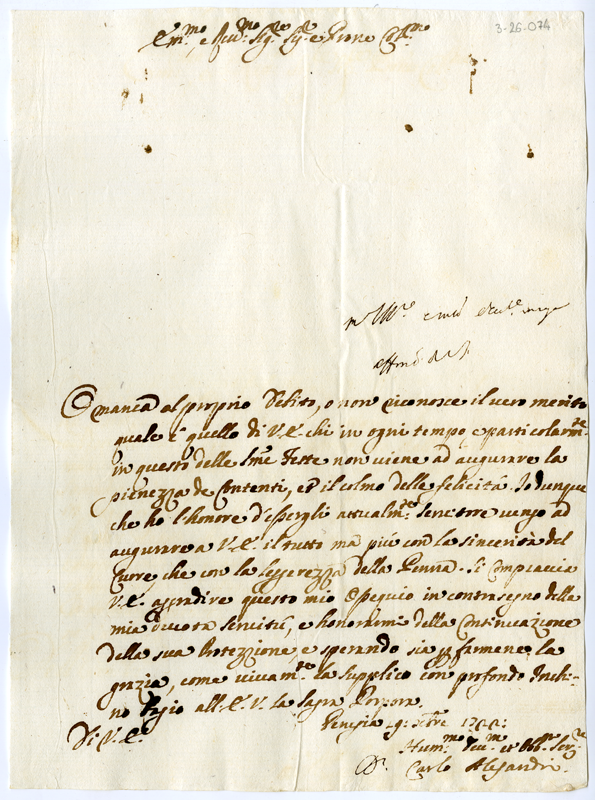 3-26-074
Em.mo, e Reu.mo Sig.re Sig.re e Prone Col.mo
O manca al proprio Debito, o non riconosce il uero merito
quale è quello di V.E. chi in ogni tempo e particolarm.te
in questo delle S.me Feste non uiene ad augurare la
pienezza de Contenti, et il colmo delle felicità. Io dunque
che ho l'honore d'essergli attualm.te seruitore uengo ad
augurare a V.E. il tutto ma più con la sincerità del
Cuore che con la leggerezza della Penna. Si Compiaccia
V.E. aggradire questo mio Ossequio in contrasegno della
mia deuota seruitù, e honorarmi della Continuazione
della sua Protezzione, e sperando sia p farmene la
grazia, come uiuam.te la supplico con profondo Inchi-
no bagio all'E.V. la sagra Porpora
Venezia 9: Xbre 1722:
Di V.E.
Hum.mo Deu.mo et Obb.mo Ser.re
Carlo Alessandri